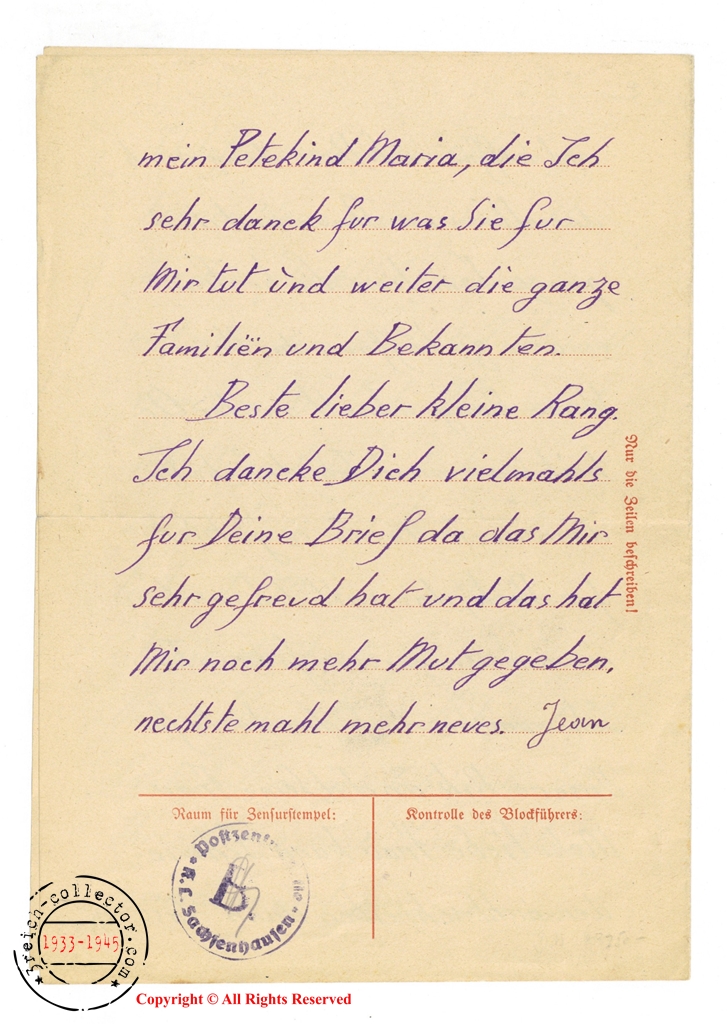 mein Petekind Maria, die Ich
sehr danck fur was Sie fur
Mir tut ùnd weiter die ganze
Familiën und Bekannten.
Beste lieber kleine Rang.
Ich dancke Dich vielmahls
fur Deine Brief da das Mir
sehr gefreud hat und das hat
Mir noch mehr Mut gegeben,
nechtste mahl mehr neves. Jean
Nur die Zeilen beschreiben!
Raum für Zensurstempel:
Kontrolle des Blockführers:
K. L. Sachsenhausen
3reich-collector.com
1933-1945
Copyright © All Rights Reserved